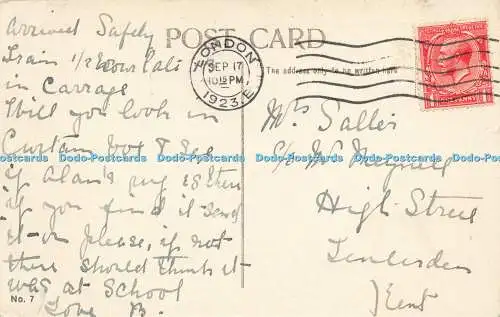 POST CARD
The address only to be written here
LONDON
SEP 17
10 15 PM
1923. E
arrived Safely
Train 1/2 hour late
in Carrage
Will you look in
Curtain box & See
if Alan's rug is there
if you find it send
it on please, if not
there should think it
was at School
Love B.
No. 7
Mrs Salter
c/o W
High Street
Tenterden
Kent
Dodo-Postcards Dodo-Postcards Dodo-Postcards Dodo-Postcards